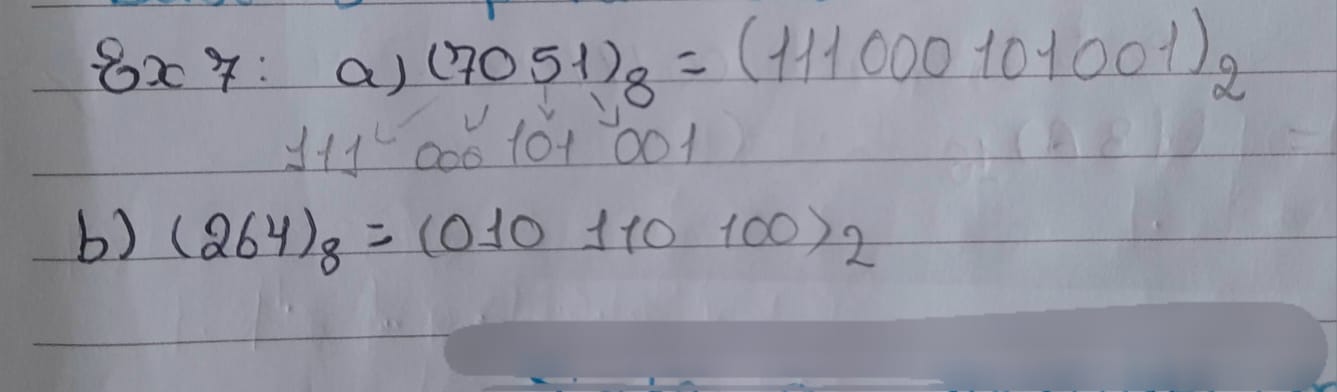 Ex 7: a) (7051)8 = (111000101001)2
111 000 101 001
b) (264)8 = (010 110 100)2